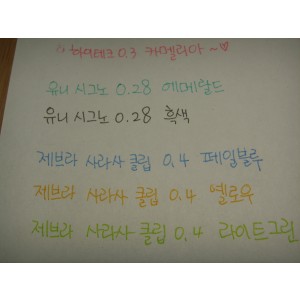 하이테크 0.3 카멜리아 ~♡
유니 시그노 0.28 에메랄드
유니 시그노 0.28 흑색
제브라 사라사 클립 0.4 페일블루
제브라 사라사 클립 0.4 옐로우
제브라 사라사 클립 0.4 라이트그린